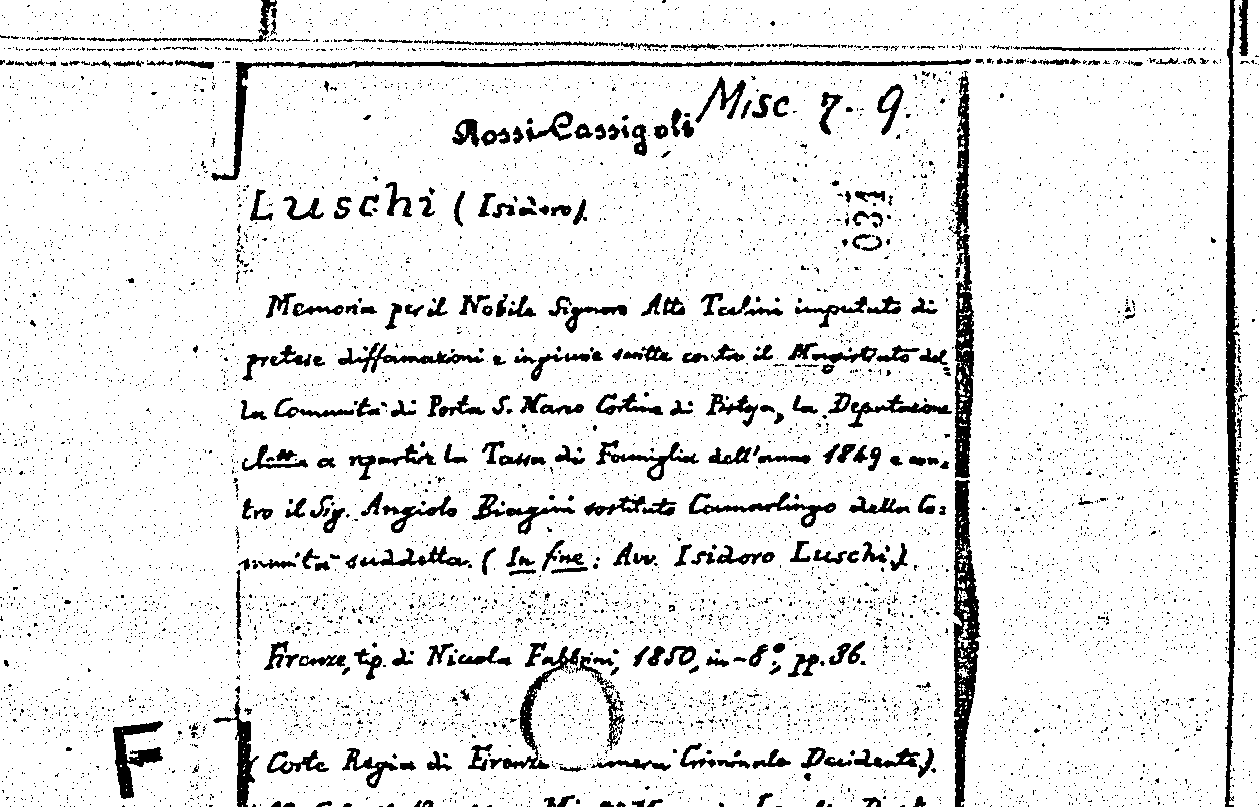 Rossi-Cassigoli Misc 7. 9.
Luschi (Isidoro).
031
Memoria per il Nobile Signore Atto Tcelini imputato di
pretese diffamazioni e ingiurie scritte contro il Magistrato del,,
la Comunità di Porta S. Marco Cortine di Pistoja, la Deputazione
a repartire la Tassa di Famiglia dell'anno 1849 e con=
tro il Sig. Angiolo Biagini sostituto Camarlingo della Co=
munità suddetta. (In fine: Avv. Isidoro Luschi.).
Firenze, tip. di Niccola Fabbrini, 1850, in-8°, pp. 36.
F
(Corte Regia di Firenze Criminale Decidente).